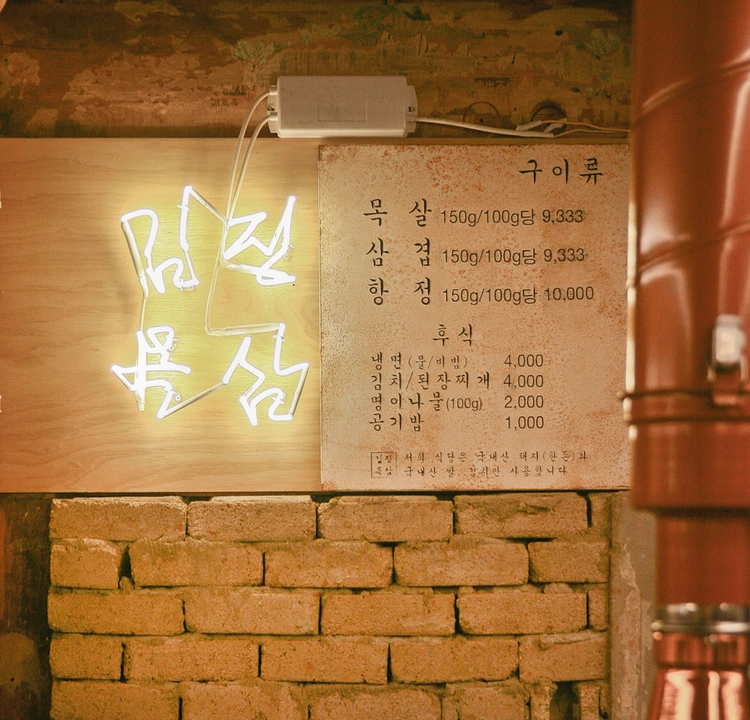 김정
목삼
구이류
목 살 150g/100g당 9,333
삼 겹 150g/100g당 9,333
항 정 150g/100g당 10,000
후식
냉면(물/비빔) 4,000
김치/된장찌개 4,000
명이나물(100g) 2,000
공기밥 1,000
김정
목삼
저희 식당은 국내산 돼지(한돈)과
국내산 쌀, 김치만 사용합니다